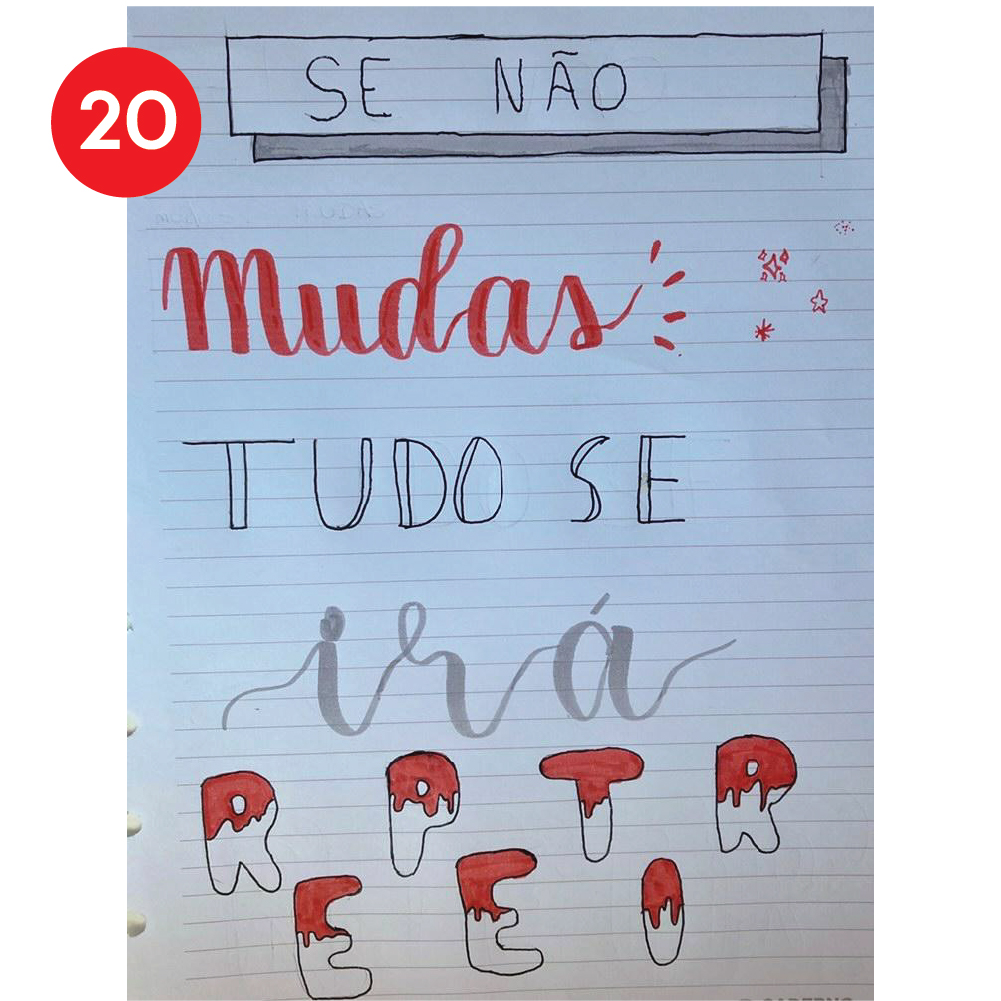 20
SE NÃO
Mudas
TUDO SE
irá
REPETIR